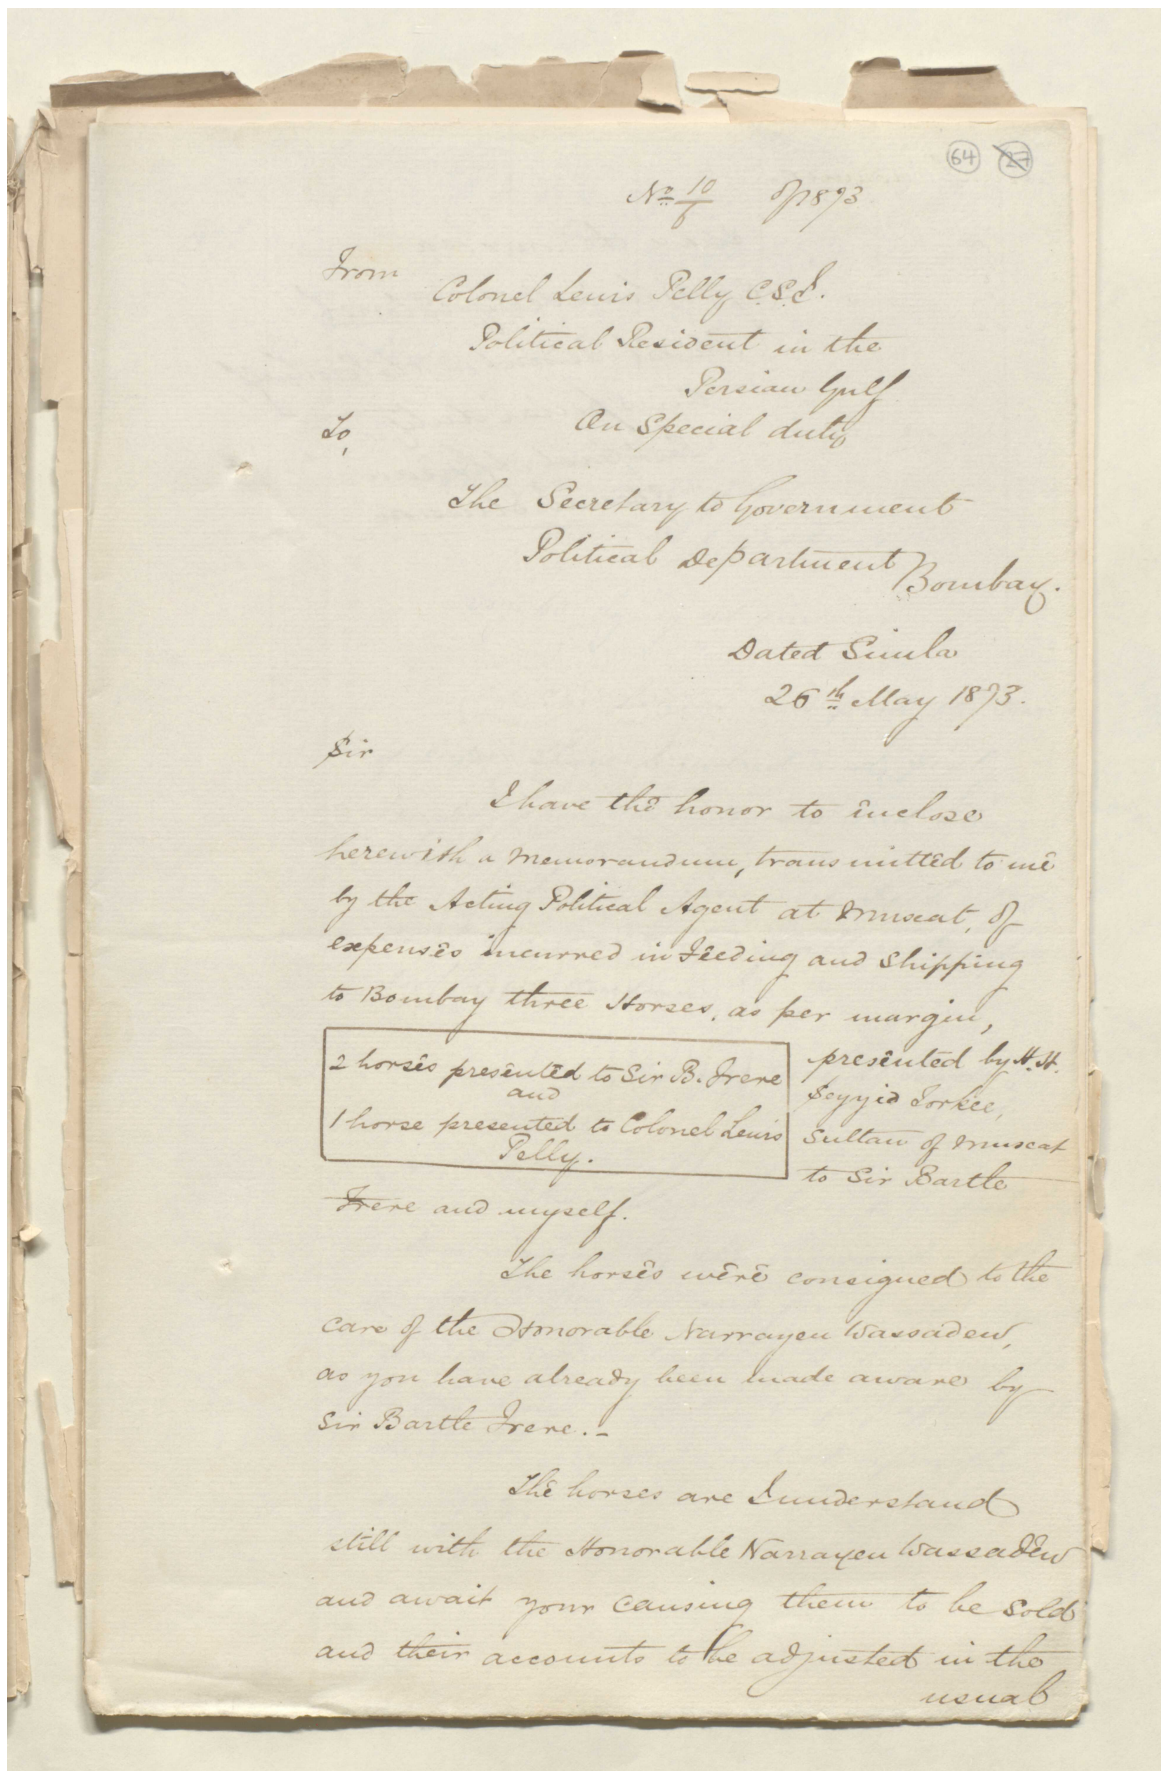 64 27
No 10/6 of 1873.
From
Colonel Lewis Pelly C.S.I.
Political Resident in the
Persian Gulf
On Special duty
To,
The Secretary to Government
Political Department Bombay.
Dated Simla
26th May 1873.
Sir
I have the honor to inclose
herewith a Memorandum, transmitted to me
by the Acting Political Agent at Muscat, of
expenses incurred in feeding and Shipping
to Bombay three Horses, as per margin,
2 horses presented to Sir B. Frere
and
1 horse presented to Colonel Lewis
Pelly.
presented by H. H.
Seyyid Torkee,
Sultan of Muscat
to Sir Bartle
Frere and myself.
The horses were consigned to the
care of the Honorable Narrayen Wassadew,
as you have already been made aware by
Sir Bartle Frere. -
The horses are I understand
still with the Honorable Narrayen Wassadew
and await your causing them to be sold
and their accounts to be adjusted in the
usual